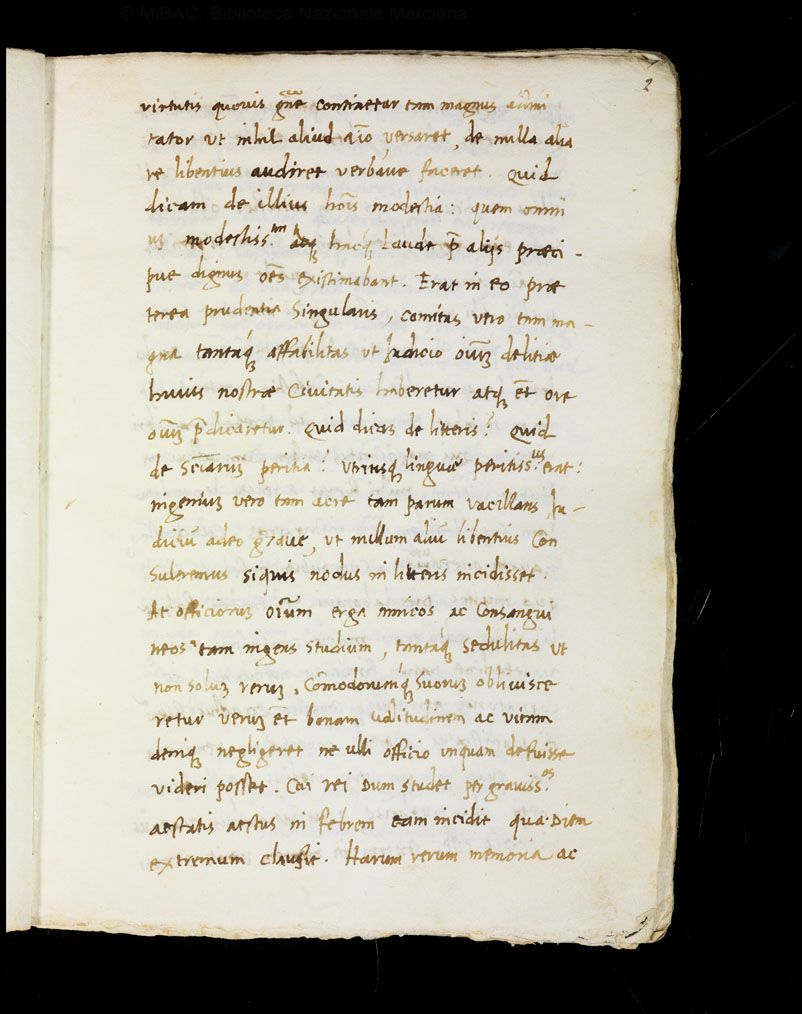 © MiBAC, Biblioteca Nazionale Marciana
2
virtutis quouis gñe continetur tam magnus admi
rator ut nihil aliud aĩo versaret, de nulla alia
re libentius audiret verbaue faceret. Quid
dicam de illius hoĩs modestia: quem omni
modestiss.um atq; hacq; laude p̃ alijs præci-
pue dignus oẽs existimabant. Erat in eo præ
terea prudentia singularis, comitas vero tam ma-
gna tantaq; affabilitas ut Judicio oiũʒ delitiæ
huius nostræ Ciuitatis haberetur atq; ẽt ore
oiũʒ p̃dicaretur. Quid dicas de litteris? Quid
de Sciẽtiarũʒ peritia? Utriusq; linguæ peritiss.us erat:
ingeniuʒ vero tam acre tam parum vacillans Ju-
diciũ adeo graue, ut nullum aliũ libentius Con
suleremus siquis nodus in litteris incidisset.
At officioruʒ oiũm erga amicos ac Consangui
neos tam ingens studium, tantaq; sedulitas ut
non soluʒ reruʒ, Cõmodorumq; suoruʒ obliuisce
retur veruʒ ẽt bonam ualitudinem ac vitam
deniq; negligeret ne ulli officio unquam defuisse
videri posset. Cui rei dum studet per grauiss.os
aestatis aestus in febrem eam incidit qua Diem
extremum clausit. Harum rerum memoria ac